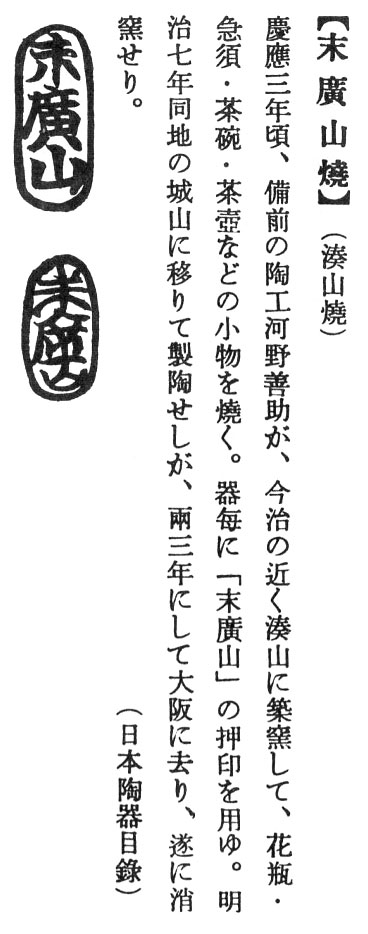 【末廣山燒】（湊山燒）
慶應三年頃、備前の陶工河野善助が、今治の近く湊山に築窯して、花瓶・
急須・茶碗・茶壺などの小物を燒く。器每に「末廣山」の押印を用ゆ。明
治七年同地の城山に移りて製陶せしが、兩三年にして大阪に去り、遂に消
窯せり。
（日本陶器目錄）
末廣山
末廣山